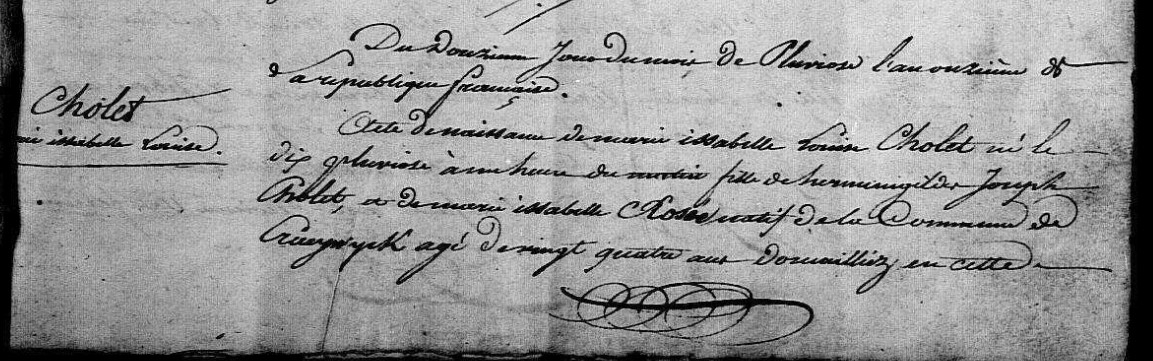 Du Douzieme Jour du mois de Pluviose l'an onzième de
la république française.
Cholet
issabelle Louise.
Acte de naissance de marie issabelle Louise Cholet né le
dix pluviose à une heure du matin fille de herminigilde Joseph
Cholet, et de marie issabelle Rose natif de la Commune de
Crueywyck agé de vingt quatre ans Domailliez en cette